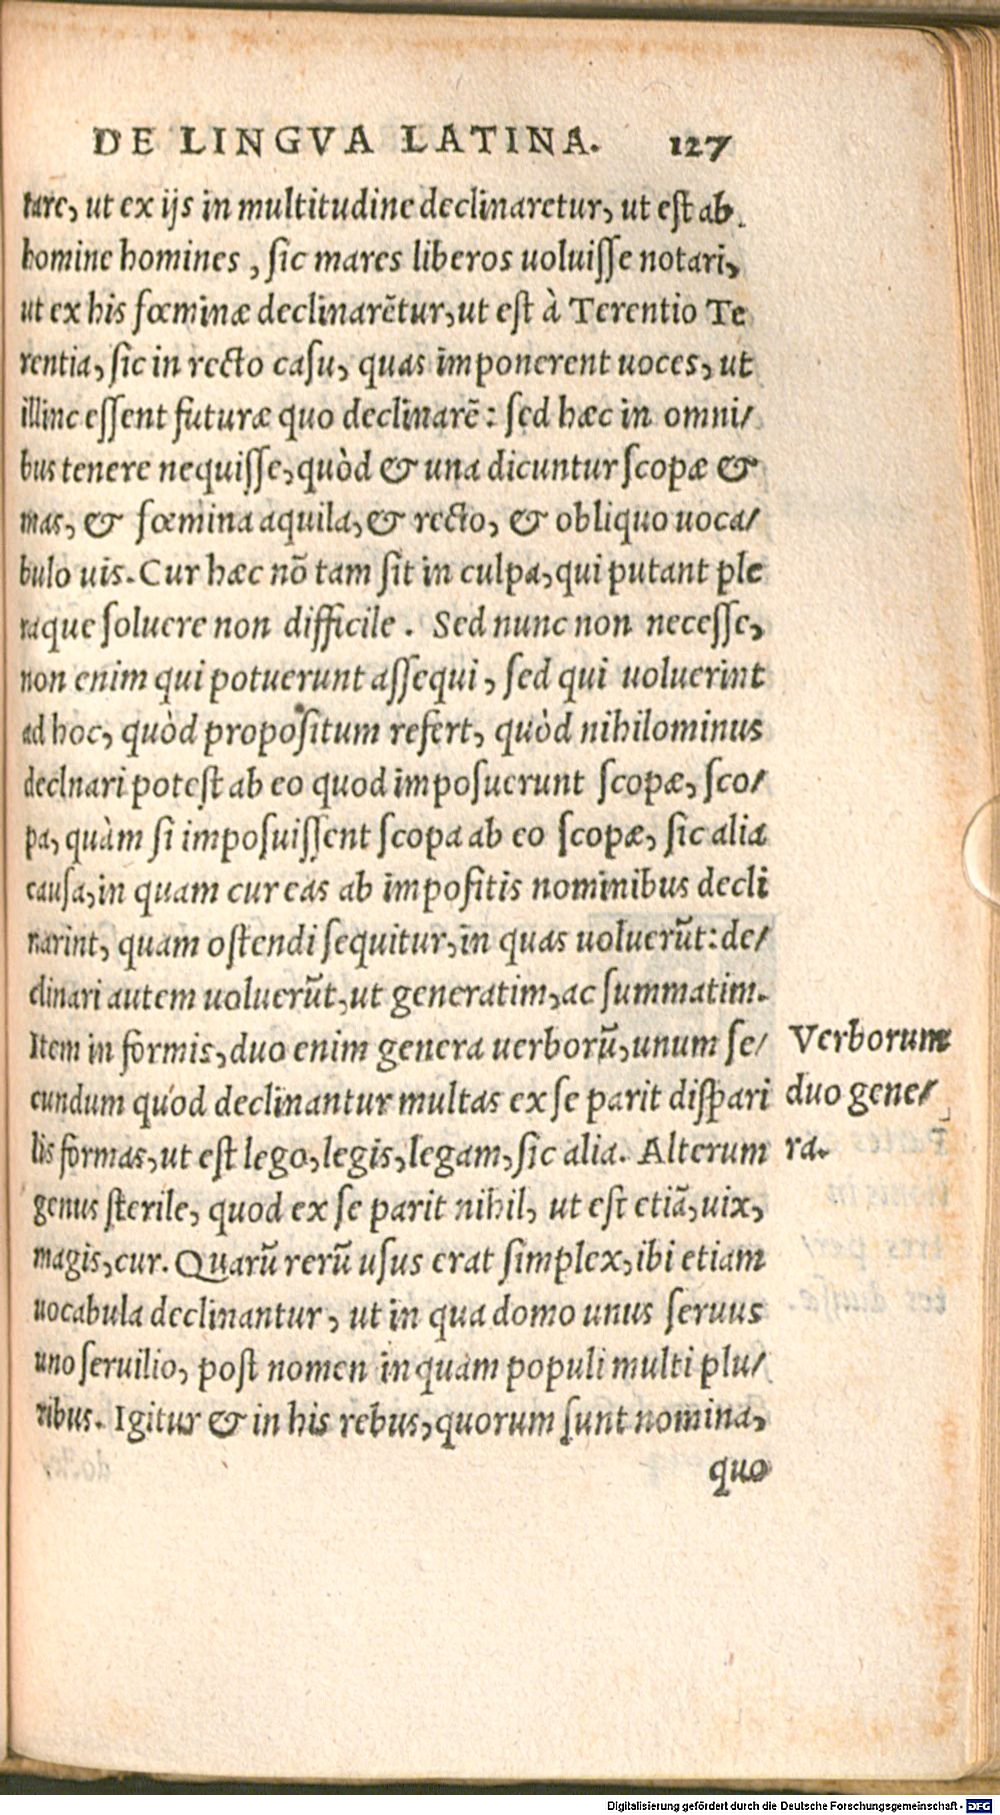 DE LINGVA LATINA. 127
tare, ut ex ijs in multitudine declinaretur, ut est ab
homine homines, sic mares liberos uoluisse notari,
ut ex his fœminæ declinarẽtur, ut est à Terentio Te
rentia, sic in recto casu, quas imponerent uoces, ut
illinc essent futuræ quo declinarẽ: sed hæc in omni/
bus tenere nequisse, quòd & una dicuntur scopæ &
mas, & fœmina aquila, & recto, & obliquo uoca/
bulo uis. Cur hæc nõ tam sit in culpa, qui putant ple
raque soluere non difficile. Sed nunc non necesse,
non enim qui potuerunt assequi, sed qui uoluerint
ad hoc, quòd propositum refert, quòd nihilominus
declnari potest ab eo quod imposuerunt scopæ, sco/
pa, quàm si imposuissent scopa ab eo scopæ, sic alia
causa, in quam cur eas ab impositis nominibus decli
narint, quam ostendi sequitur, in quas uoluerũt: de/
clinari autem uoluerũt, ut generatim, ac summatim.
Item in formis, duo enim genera uerborũ, unum se/
cundum quod declinantur multas ex se parit dispari
lis formas, ut est lego, legis, legam, sic alia. Alterum
genus sterile, quod ex se parit nihil, ut est etiã, uix,
magis, cur. Quarũ rerũ usus erat simplex, ibi etiam
uocabula declinantur, ut in qua domo unus seruus
uno seruilio, post nomen in quam populi multi plu/
ribus. Igitur & in his rebus, quorum sunt nomina,
quo
Verborum
duo gene/
ra.
Digitalisierung gefördert durch die Deutsche Forschungsgemeinschaft - DFG